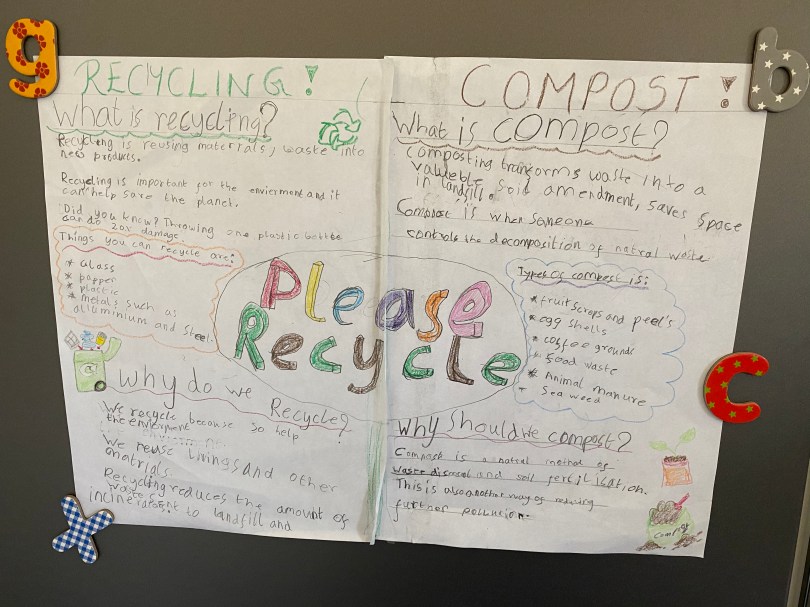 g
b
RECYCLING!
What is recycling?
Recycling is reusing materials, waste into
new products.
Recycling is important for the envierment and it
can help save the planet.
Did you know? Throwing one plastic
can do 20x damage.
Things you can recycle are:
* Glass
* papper
* plastic
* metals such as
alluminium and steel.
Why do we Recycle?
We recycle because so help
the enviorment
We reuse livings and other
matrials.
Recycling reduces the amount of
waste
to landfill and
Please
Recycle
COMPOST!
What is compost?
composting tranforms waste into a
valueble soid amendment, saves space
in landfill.
Compost is when someone
controls the decomposition of natral waste
Types of compost is:
* fruit scrops and peel's
* egg shells
* coffee grounds
* food waste
* Animal manure
* Sea weed
c
Why should we compost?
Compost is a natral method of
waste disosal and soil fertilisation.
This is also another way of reducing
further pollucion.
x